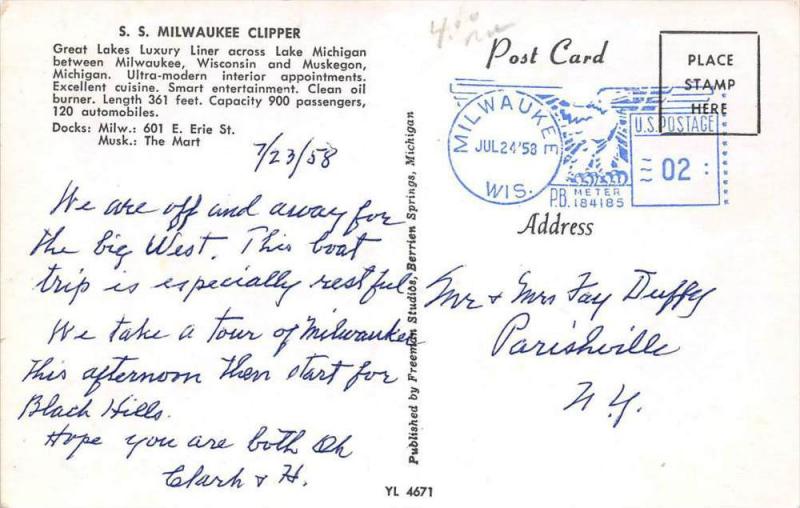 S. S. MILWAUKEE CLIPPER
Great Lakes Luxury Liner across Lake Michigan
between Milwaukee, Wisconsin and Muskegon,
Michigan. Ultra-modern interior appointments.
Excellent cuisine. Smart entertainment. Clean oil
burner. Length 361 feet. Capacity 900 passengers,
120 automobiles.
Docks: Milw.: 601 E. Erie St.
Musk.: The Mart
7/23/58
We are off and away for
the big West. This boat
trip is especially restful
We take a tour of Milwaukee
this afternoon then start for
Black Hills.
Hope you are both Ok
Clark & H.
Published by Freeman Studios, Berrien Springs, Michigan
YL 4671
Post Card
PLACE
STAMP
HERE
MILWAUKEE
JUL 24 '58
WIS.
U.S. POSTAGE
02
P.B. METER
184185
Address
Mr & Mrs Fay Duffy
Parishville
N.Y.